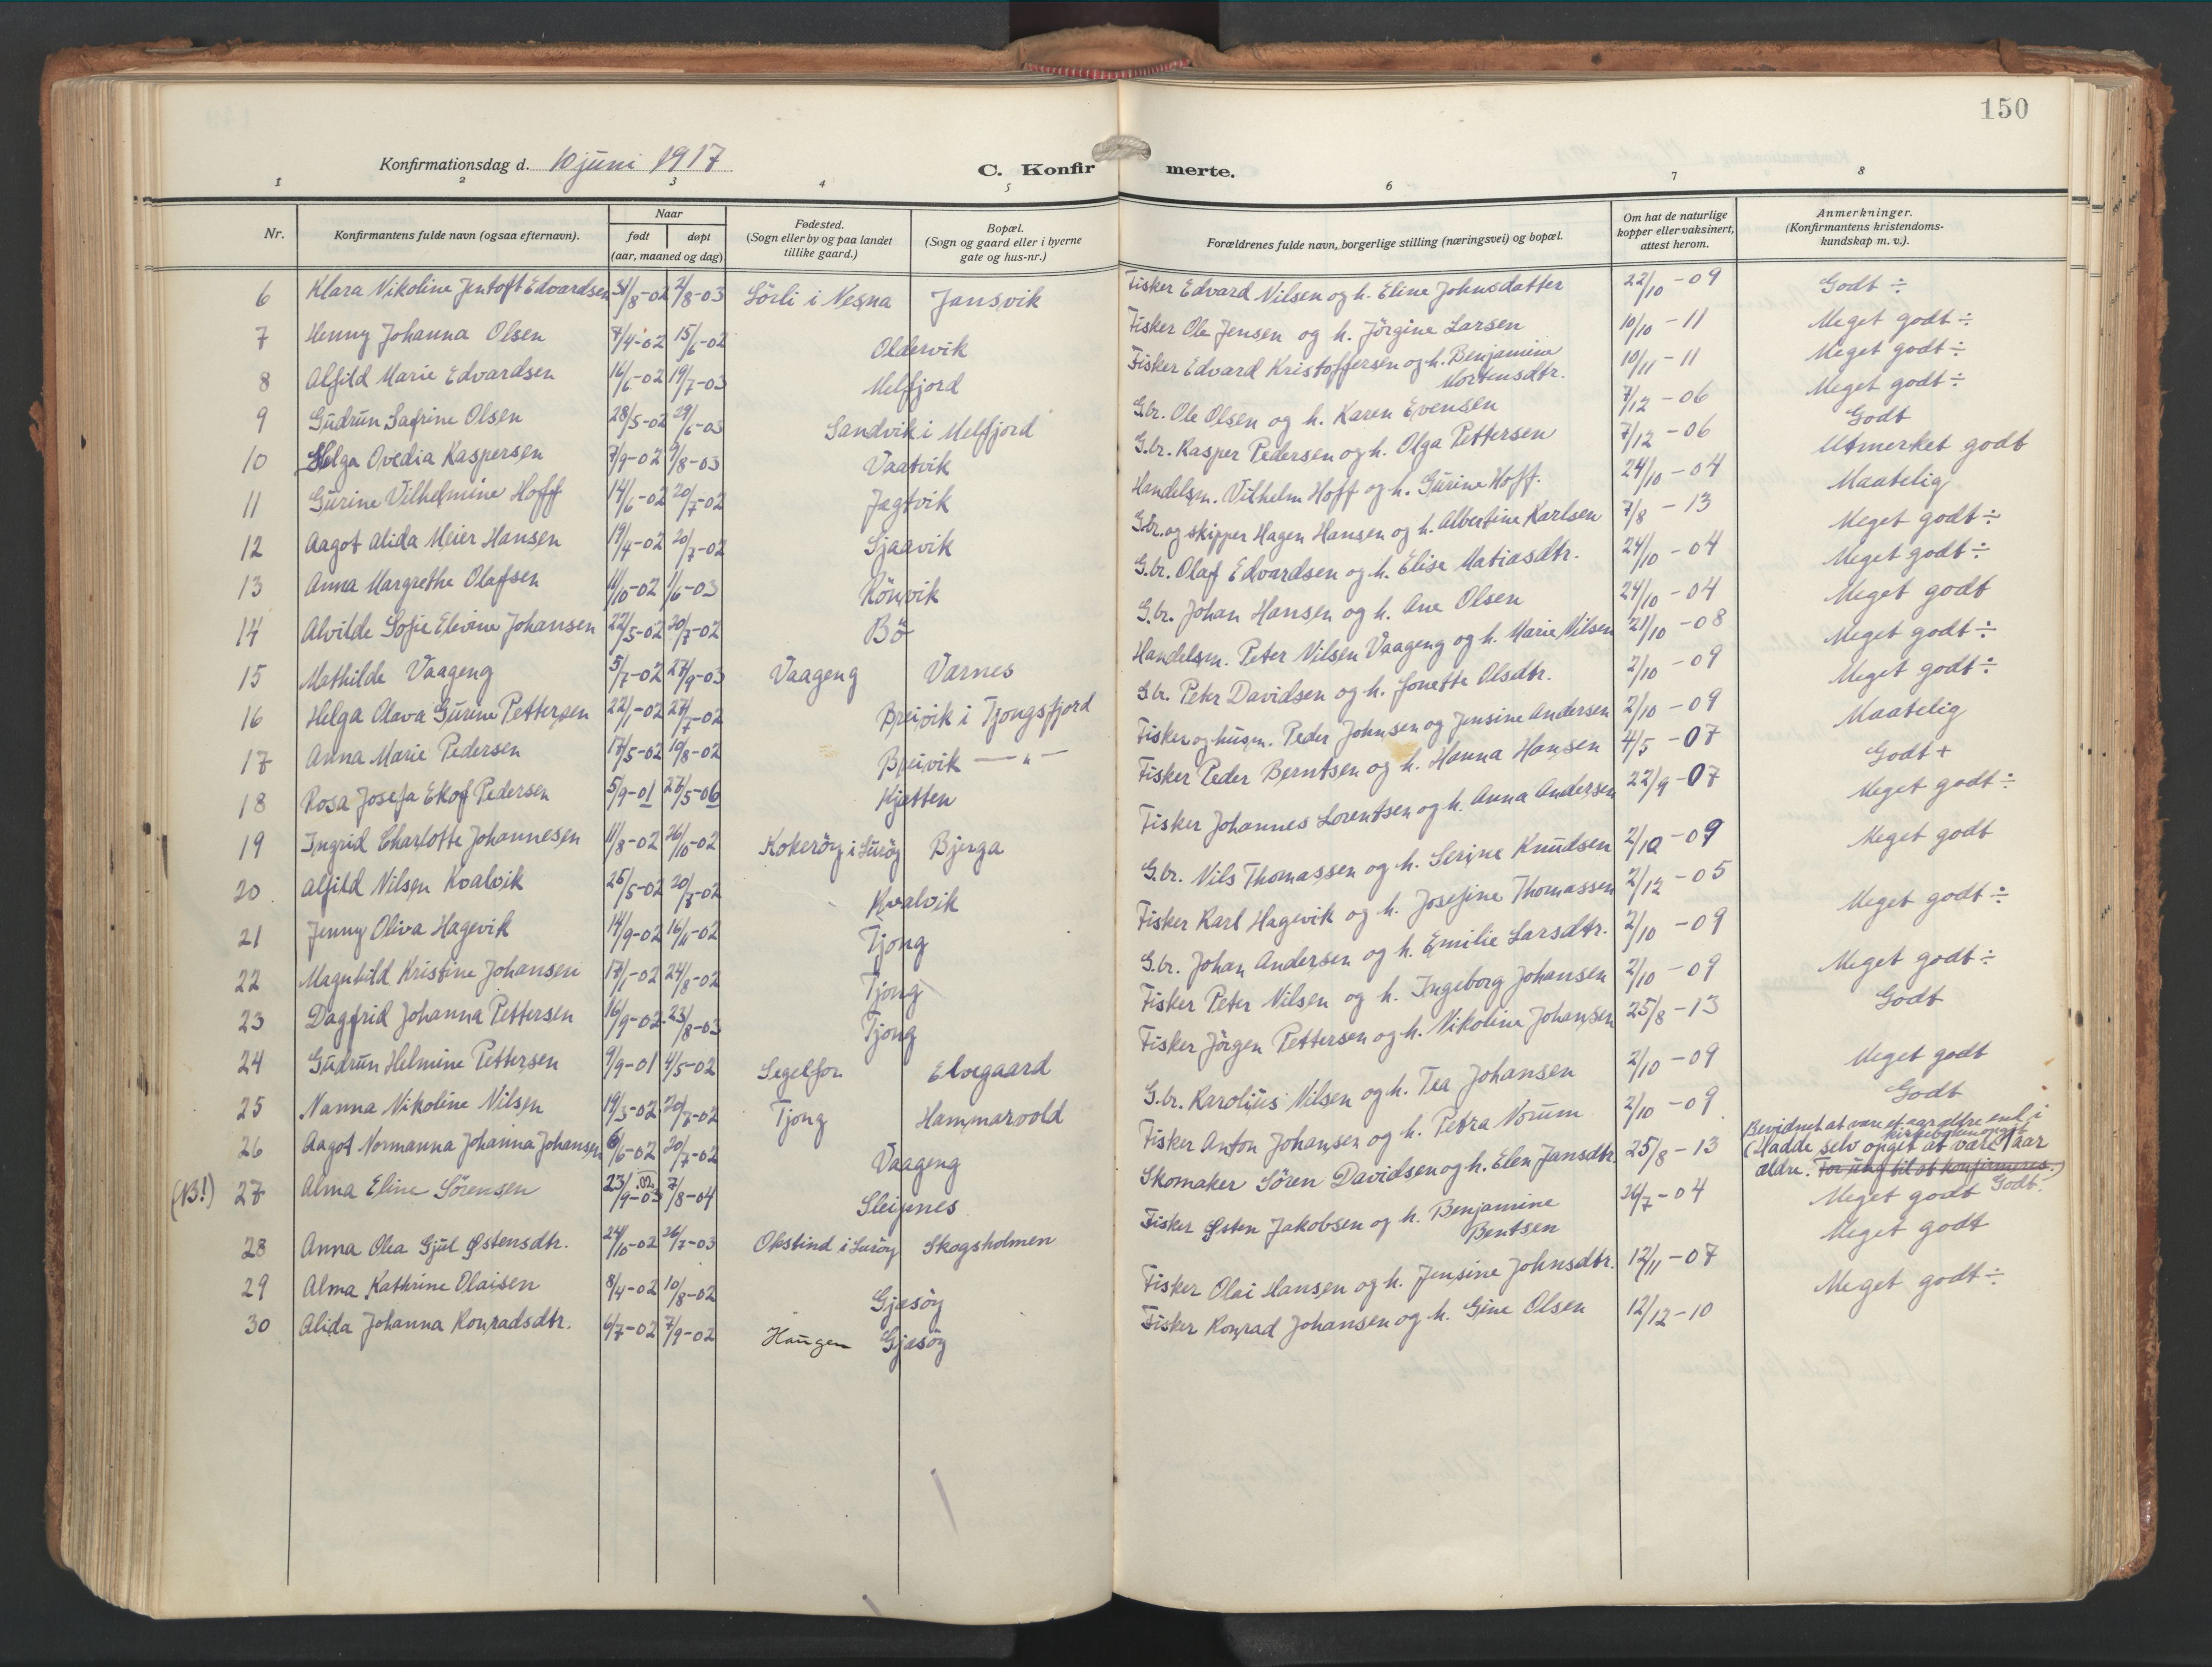 150
Konfirmationsdag d. 10 juni 1917
C. Konfirmerte.
1 2 3 4 5 6 7 8
Nr. Konfirmantens fulde navn (ogsaa efternavn). Naar født døpt (aar, maaned og dag) Fødested. (Sogn eller by og paa landet tillike gaard.) Bopæl. (Sogn og gaard eller i byerne gate og hus-nr.) Forældrenes fulde navn, borgerlige stilling (næringsvei) og bopæl. Om hat de naturlige kopper eller vaksinert, attest herom. Anmerkninger. (Konfirmantens kristendoms-kundskap m. v.).
6 Klara Nikoline Jentoft Edvardsen 31/8-02 2/8-03 Sörli i Nesna Jansvik Fisker Edvard Nilsen og h. Eline Johnsdatter 22/10-09 Godt ÷
7 Henny Johanna Olsen 7/4-02 15/6-02 Oldervik Fisker Ole Jensen og h. Jörgine Larsen 10/10-11 Meget godt ÷
8 Alfild Marie Edvardsen 16/6-02 19/7-03 Melfjord Fisker Edvard Kristoffersen og h. Benjamine Mortensdtr. 10/11-11 Meget godt ÷
9 Gudrun Safrine Olsen 28/5-02 29/6-03 Sandvik i Melfjord Gbr. Ole Olsen og h. Karen Evensen 7/12-06 Meget godt ÷
10 Helga Ovedia Kaspersen 7/9-02 9/8-03 Vaatvik G.br. Kasper Pedersen og h. Olga Pettersen 7/12-06 Godt
11 Gurine Vilhelmine Hoff 14/6-02 20/7-02 Jegtvik Handelsm. Vilhelm Hoff og h. Gurine Hoff. 24/10-04 Utmerket godt
12 Aagot Alida Meier Hansen 19/4-02 20/7-02 Sjaavik Gbr. og skipper Hagen Hansen og h. Albertine Karlsen 7/8-13 Maatelig
13 Anna Margrethe Olafsen 11/10-02 1/6-03 Rönvik G.br. Olaf Edvardsen og h. Elise Matiasdtr. 24/10-04 Meget godt ÷
14 Alvilde Sofie Elevine Johansen 22/5-02 20/7-02 Bö G.br. Johan Hansen og h. Ane Olsen 24/10-04 Meget godt ÷
15 Mathilde Vaageng 5/7-02 27/9-03 Vaageng Værnes Handelsm. Peter Nilsen Vaageng og h. Marie Nilsen 21/10-08 Meget godt
16 Helga Olava Gurine Pettersen 22/1-02 27/7-02 Breivik i Tjongsfjord G.br. Peter Davidsen og h. Jonette Olsdtr. 2/10-09 Meget godt ÷
17 Anna Marie Pedersen 17/5-02 10/8-02 Breivik —"— Fisker og husm. Peder Johnsen og Jensine Andersen 2/10-09 Meget godt ÷
18 Rosa Josefa Ekof Pedersen 5/9-01 27/5-06 Kjetten Fisker Peder Berntsen og h. Hanna Hansen 4/5-07 Maatelig
19 Ingrid Charlotte Johannesen 11/8-02 26/10-02 Kokeröy i Luröy Bjerga Fisker Johannes Lorentsen og h. Anna Andersen 22/9-07 Godt +
20 Alfild Nilsen Kvalvik 25/5-02 20/7-02 Kvalvik G.br. Nils Thomassen og h. Serine Knudsen 2/10-09 Meget godt ÷
21 Jenny Oliva Hagevik 14/9-02 16/11-02 Tjong Fisker Karl Hagevik og h. Josefine Thomassen 2/12-05 Meget godt
22 Magnhild Kristine Johansen 17/1-02 24/8-02 Tjong G.br. Johan Andersen og h. Emilie Larsdtr. 2/10-09 Meget godt ÷
23 Dagfrid Johanna Pettersen 16/9-02 23/8-03 Tjong Fisker Peter Nilsen og h. Ingeborg Johansen 2/10-09 Meget godt ÷
24 Gudrun Helmine Pettersen 9/9-01 4/5-02 Segelfor Elvegaard Fisker Jörgen Pettersen og h. Nikoline Johansen 25/8-13 Godt
25 Nanna Nikoline Nilsen 19/3-02 20/7-02 Tjong Hammarvold G.br. Karolius Nilsen og h. Tea Johansen 2/10-09 Meget godt
26 Aagot Normanna Johanna Johansen 6/6-02 20/7-02 Vaageng Fisker Anton Johansen og h. Petra Norum 2/10-09 Godt
(NB!) 27 Alma Eline Sörensen 23/9-03 .02. 7/8-04 Sleipnes Skomaker Sören Davidsen og h. Elen Jansdtr. 25/8-13 Bevidnet at være et aar ældre end i kirkeboken opgit (Hadde selv opgit at være 1 aar ældre. For ung til at konfirmeres.) Godt.
28 Anna Olea Gjul Østensdtr. 24/10-02 26/7-03 Okstind i Luröy Skogsholmen Fisker Østen Jakobsen og h. Benjamine Bentsen 26/7-04 Meget godt
29 Alma Kathrine Olaisen 8/4-02 10/8-02 Gjesöy Fisker Olai Hansen og h. Jensine Johnsdtr. 12/11-07 Meget godt
30 Alida Johanna Konradsdtr. 6/7-02 7/9-02 Haugen Gjesöy Fisker Konrad Johansen og h. Gine Olsen 12/12-10 Meget godt ÷